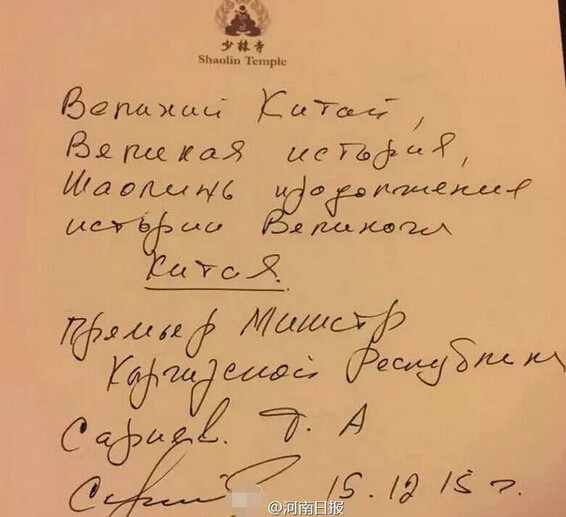 少林寺
Shaolin Temple
Великий Китай,
Великая история,
Шаолинь продолжения
истории Великого
Китая.
Премьер Министр
Кыргызской Республики
Сариев. Т. А
15.12 15 г.
@河南日报